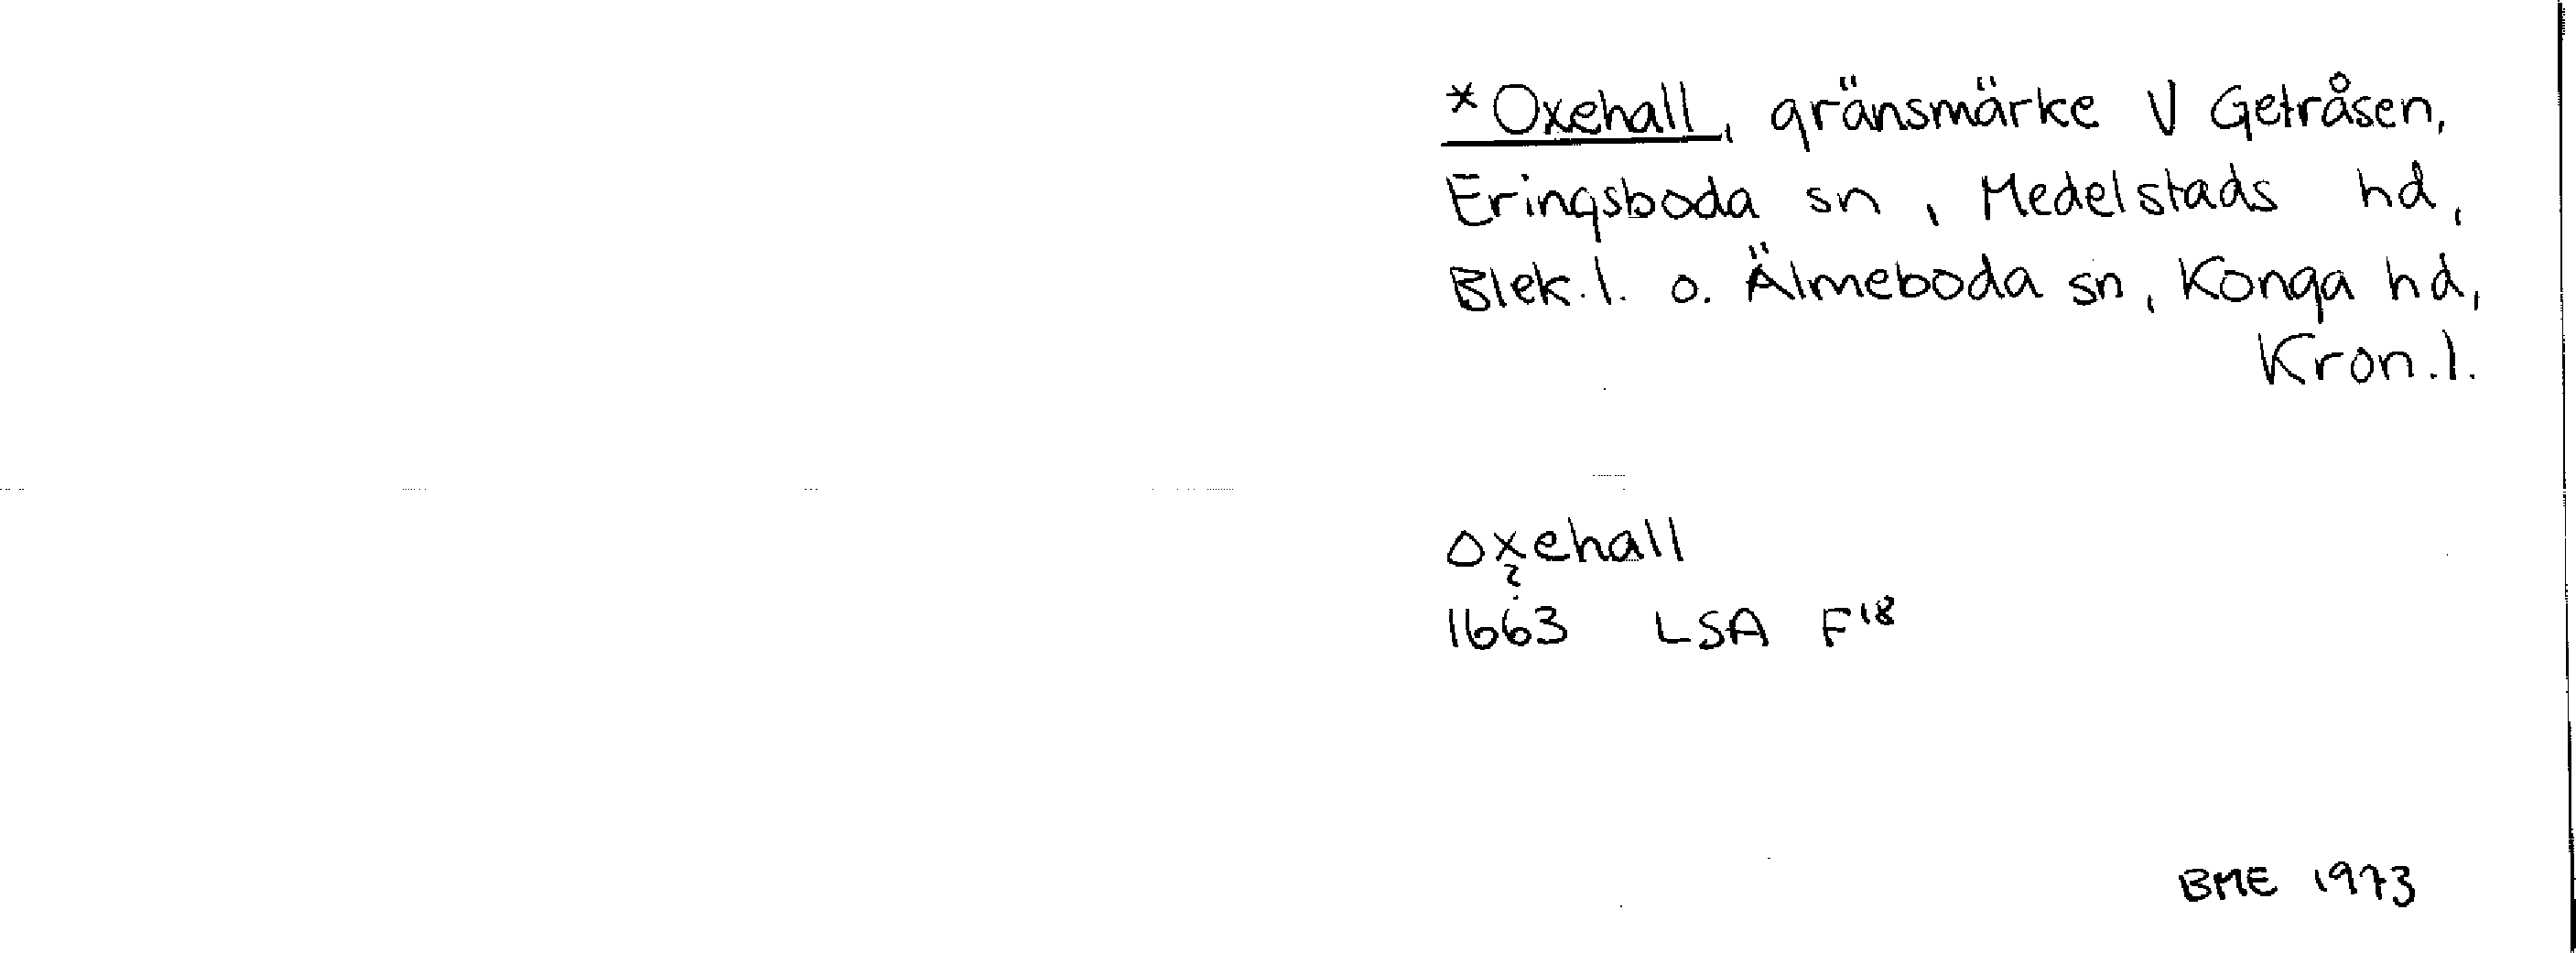 * Oxehall, gränsmärke V Getråsen,
Eringsboda sn, Medelstads hd,
Blek.l. o. Älmeboda sn, Konga hd,
Kron.l.
oxehall
?
1663 LSA F18
BME 1973